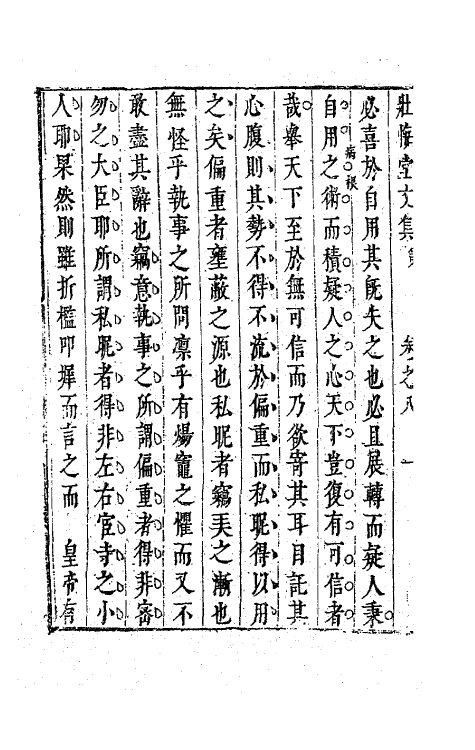 壯悔堂文集 卷之八 一
必喜於自用其旣失之也必且展轉而疑人秉
自用之術而積疑人之心天下豈復有可信者
病根
哉舉天下至於無可信而乃欲寄其耳目託其
心腹則其勢不得不流於偏重而私昵得以用
之矣偏重者壅蔽之源也私昵者竊美之漸也
無怪乎執事之所問凛乎有煬竈之懼而又不
敢盡其辭也竊意執事之所謂偏重者得非密
勿之大臣耶所謂私昵者得非左右宦寺之小
人耶果然則雖折檻叩墀而言之而 皇帝有